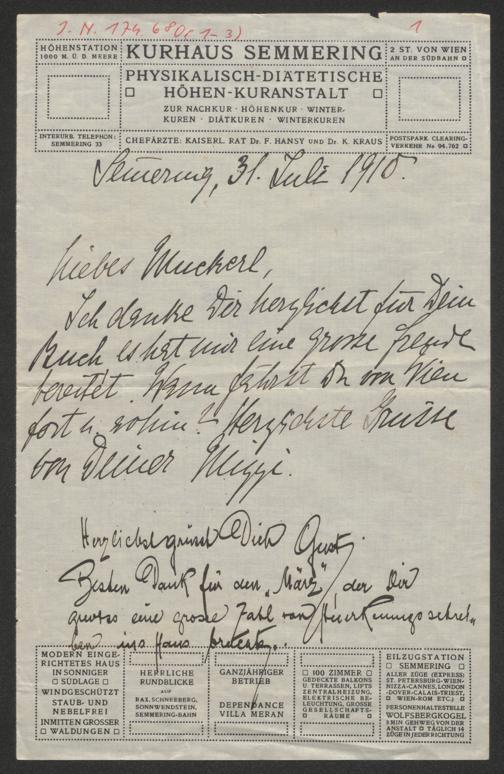 J. N. 174 680(1-3)
1
HÖHENSTATION
1000 M. Ü. D. MEERE
KURHAUS SEMMERING
2 ST. VON WIEN
AN DER SÜDBAHN
PHYSIKALISCH-DIÄTETISCHE
HÖHEN-KURANSTALT
ZUR NACHKUR · HÖHENKUR · WINTER-
KUREN · DIÄTKUREN · WINTERKUREN
INTERURB. TELEPHON:
SEMMERING 33
CHEFÄRZTE: KAISERL. RAT Dr. F. HANSY UND Dr. K. KRAUS
POSTSPARK. CLEARING-
VERKEHR No 94.702
Semmering, 31. Juli 1910.
Liebes Muckerl,
Ich danke Dir herzlichst für Dein
Buch es hat mir eine grosse Freude
bereitet. Wann fährst Du von Wien
fort u. wohin? Herzlichste Grüsse
von Deiner Mizzi.
Herzlichst grüsst Dich Gusti
Besten Dank für den „März", der Dir
gewiss eine grosse Zahl von Anerkennungsschrei-
ben ins Haus
MODERN EINGE-
RICHTETES HAUS
IN SONNIGER
SÜDLAGE
WINDGESCHÜTZT
STAUB- UND
NEBELFREI
INMITTEN GROSSER
WALDUNGEN
HERRLICHE
RUNDBLICKE
AUF
RAX, SCHNEEBERG,
SONNWENDSTEIN,
SEMMERING-BAHN
GANZJÄHRIGER
BETRIEB
DEPENDANCE
VILLA MERAN
100 ZIMMER
GEDECKTE BALKONS
U. TERRASSEN, LIFTS
ZENTRALHEIZUNG,
ELEKTRISCHE BE-
LEUCHTUNG, GROSSE
GESELLSCHAFTS-
RÄUME
EILZUGSTATION
SEMMERING
ALLER ZÜGE (EXPRESS)
ST. PETERSBURG-WIEN-
NIZZA-CANNES, LONDON
-DOVER-CALAIS-TRIEST,
WIEN-ROM ETC.)
PERSONENHALTESTELLE
WOLFSBERGKOGEL
5 MIN GEHWEG VON DER
ANSTALT TÄGLICH 14
ZÜGE IN JEDER RICHTUNG